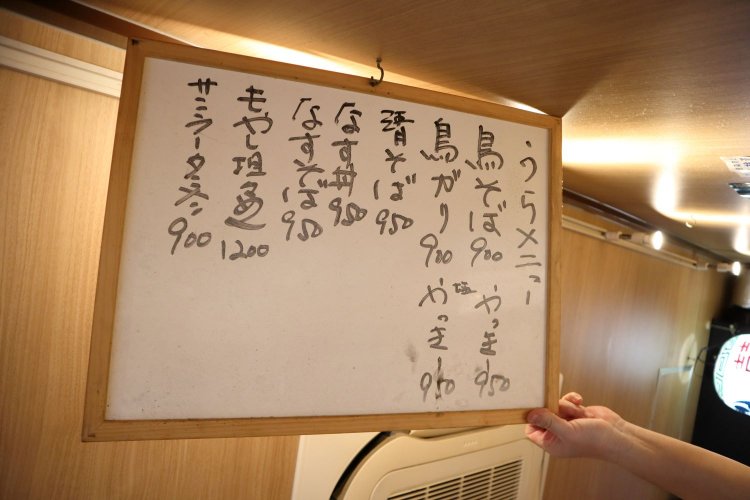 ・うらメニュー
鳥そば 900 ・やっきー 950
鳥ガリ 900 塩やっきー 950
清そば 950
なす丼 950
なすそば 950
もやし坦々めん 1200
サンラータンメン 900